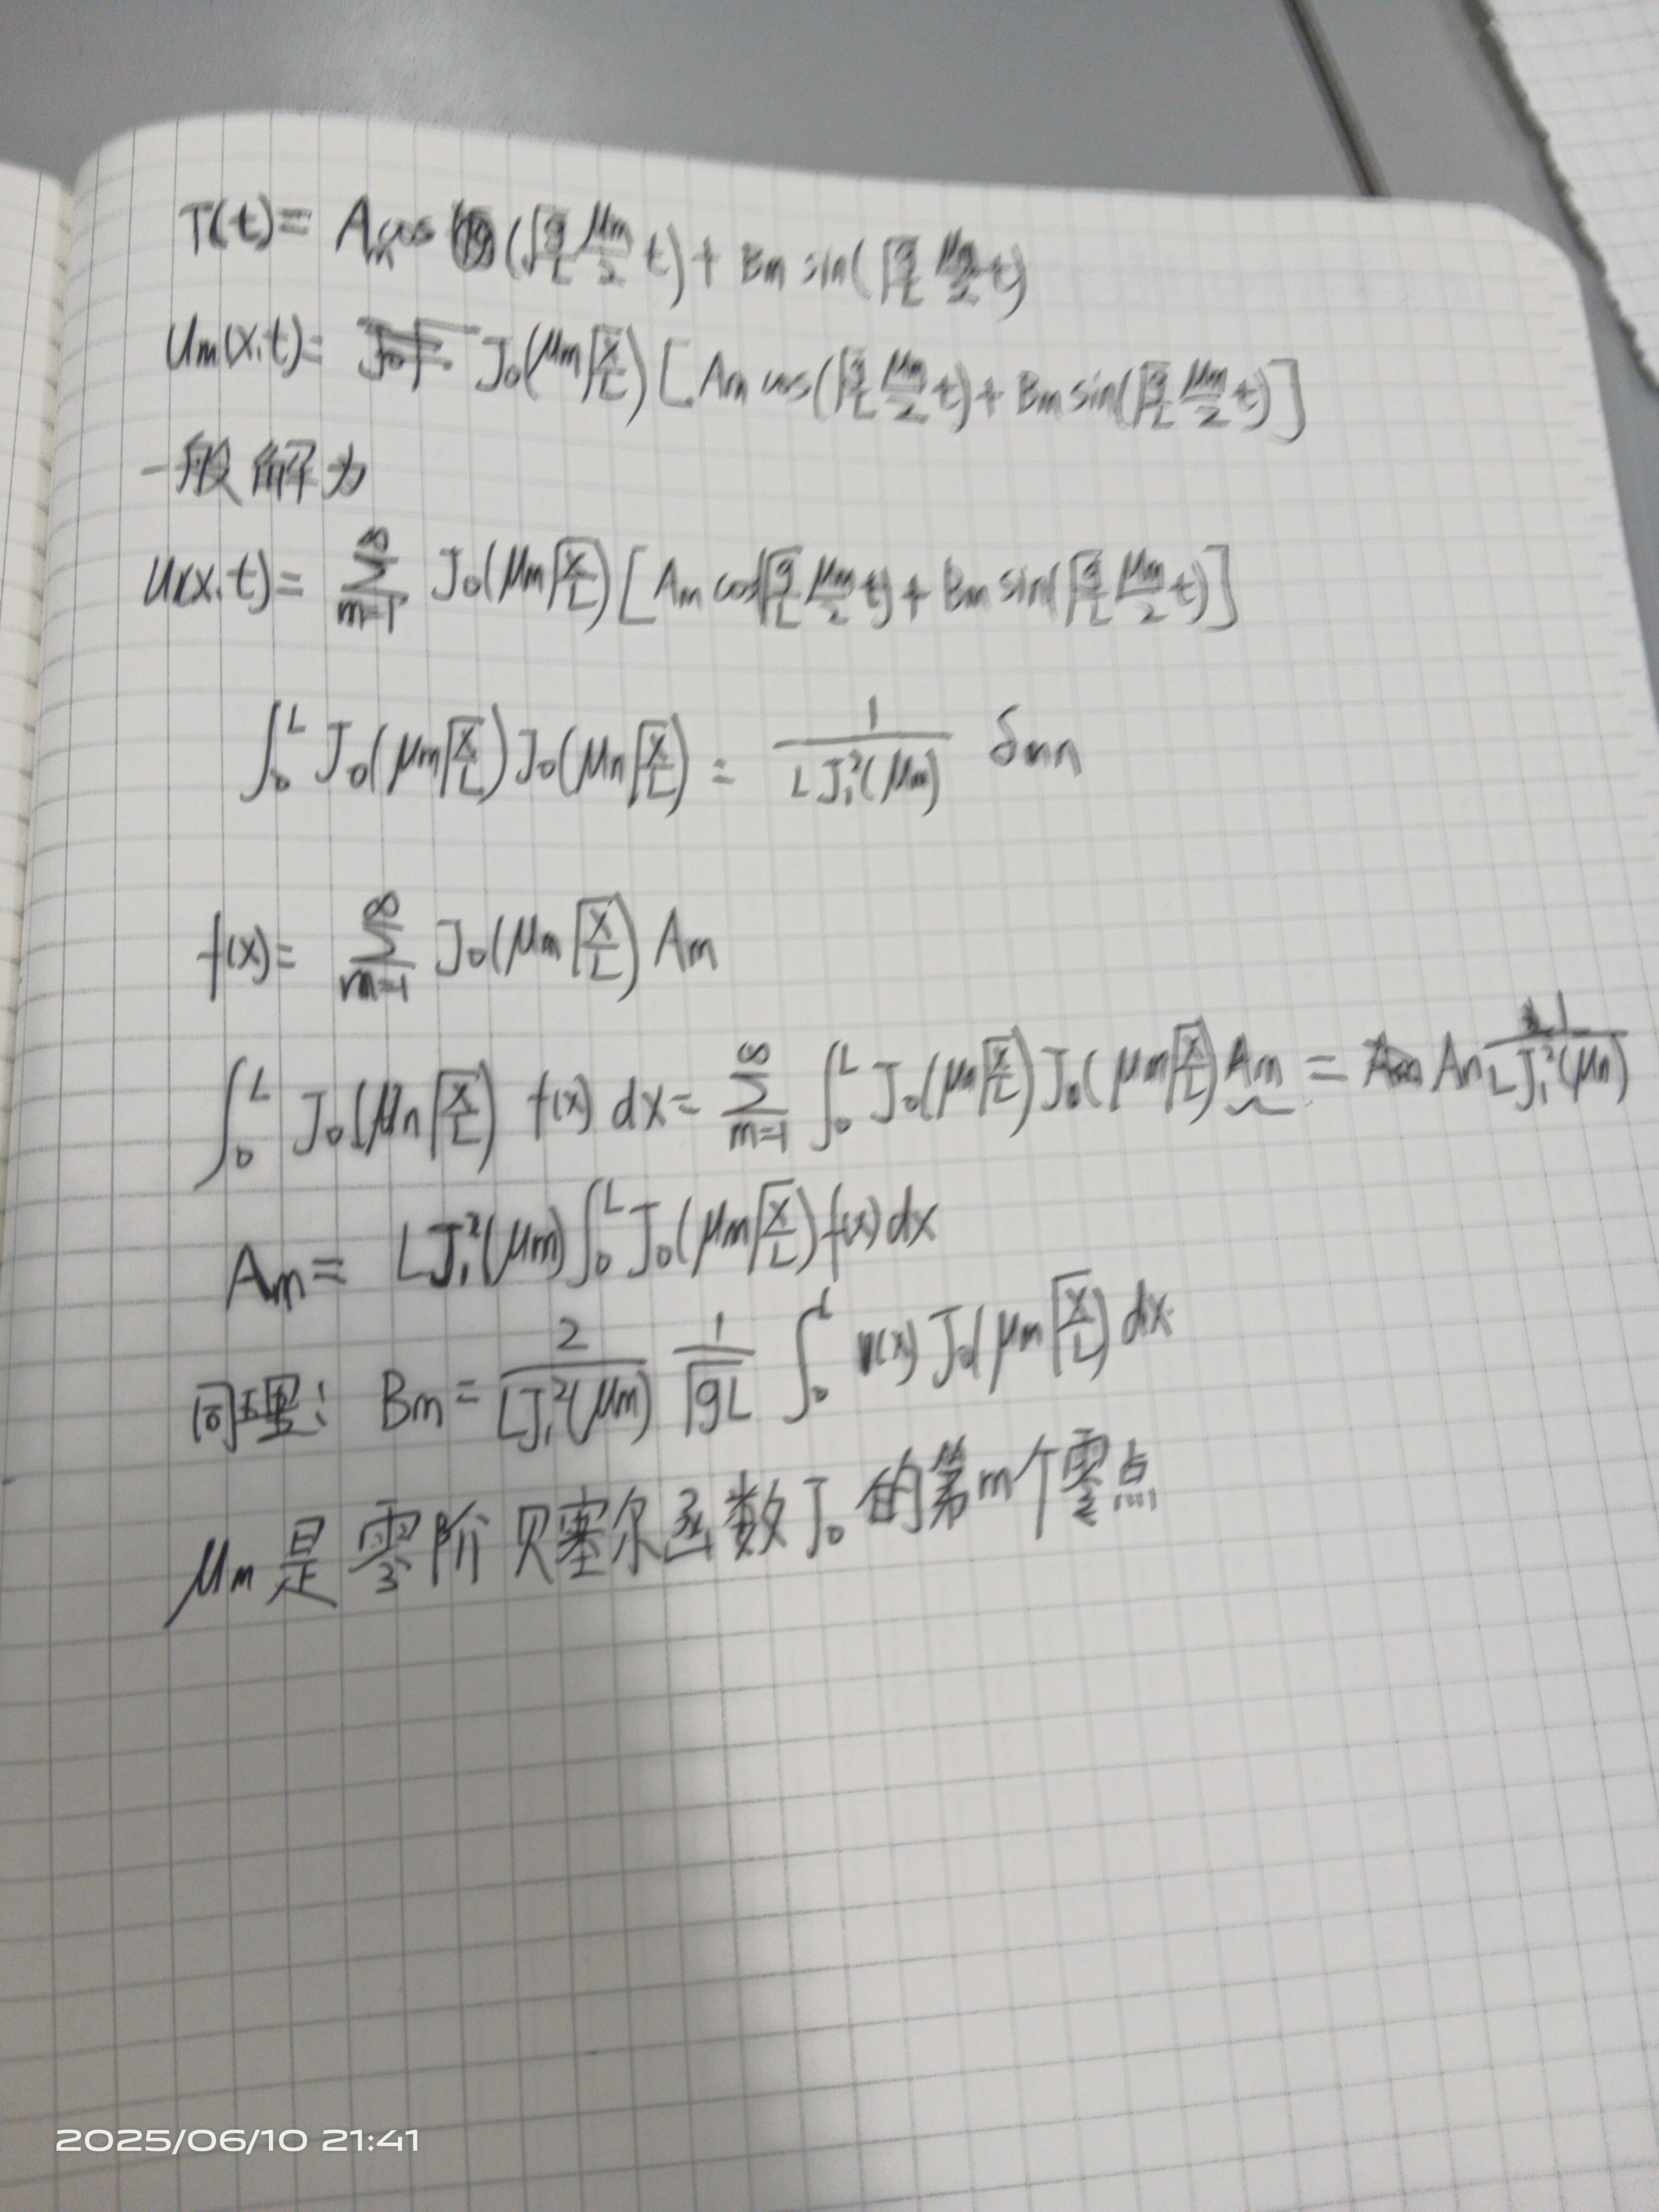 T(t)= Aₘcos (√(g/L) μm/2 t)+ Bm sin(√(g/L) μm/2 t)
Um(x,t)= J₀(μm√(x/L)) [Am cos(√(g/L) μm/2 t)+ Bm sin(√(g/L) μm/2 t)]
一般解为
U(x,t)= ∑_{m=1}^{∞} J₀(μm√(x/L)) [Am cos(√(g/L) μm/2 t)+ Bm sin(√(g/L) μm/2 t)]
∫₀ᴸ J₀(μm√(x/L)) J₀(μn√(x/L)) = 1/(L J₁²(μm)) δmn
f(x)= ∑_{m=1}^{∞} J₀(μm√(x/L)) Am
∫₀ᴸ J₀(μn√(x/L)) f(x) dx= ∑_{m=1}^{∞} ∫₀ᴸ J₀(μn√(x/L)) J₀(μm√(x/L)) Am = An 1/(L J₁²(μn))
Am= L J₁²(μm) ∫₀ᴸ J₀(μm√(x/L)) f(x) dx
同理: Bm= 2/(L J₁²(μm)) 1/√(gL) ∫₀ᴸ (x) J₀(μm√(x/L)) dx
μm 是 零阶 贝塞尔函数 J₀ 的第m个零点
2025/06/10 21:41